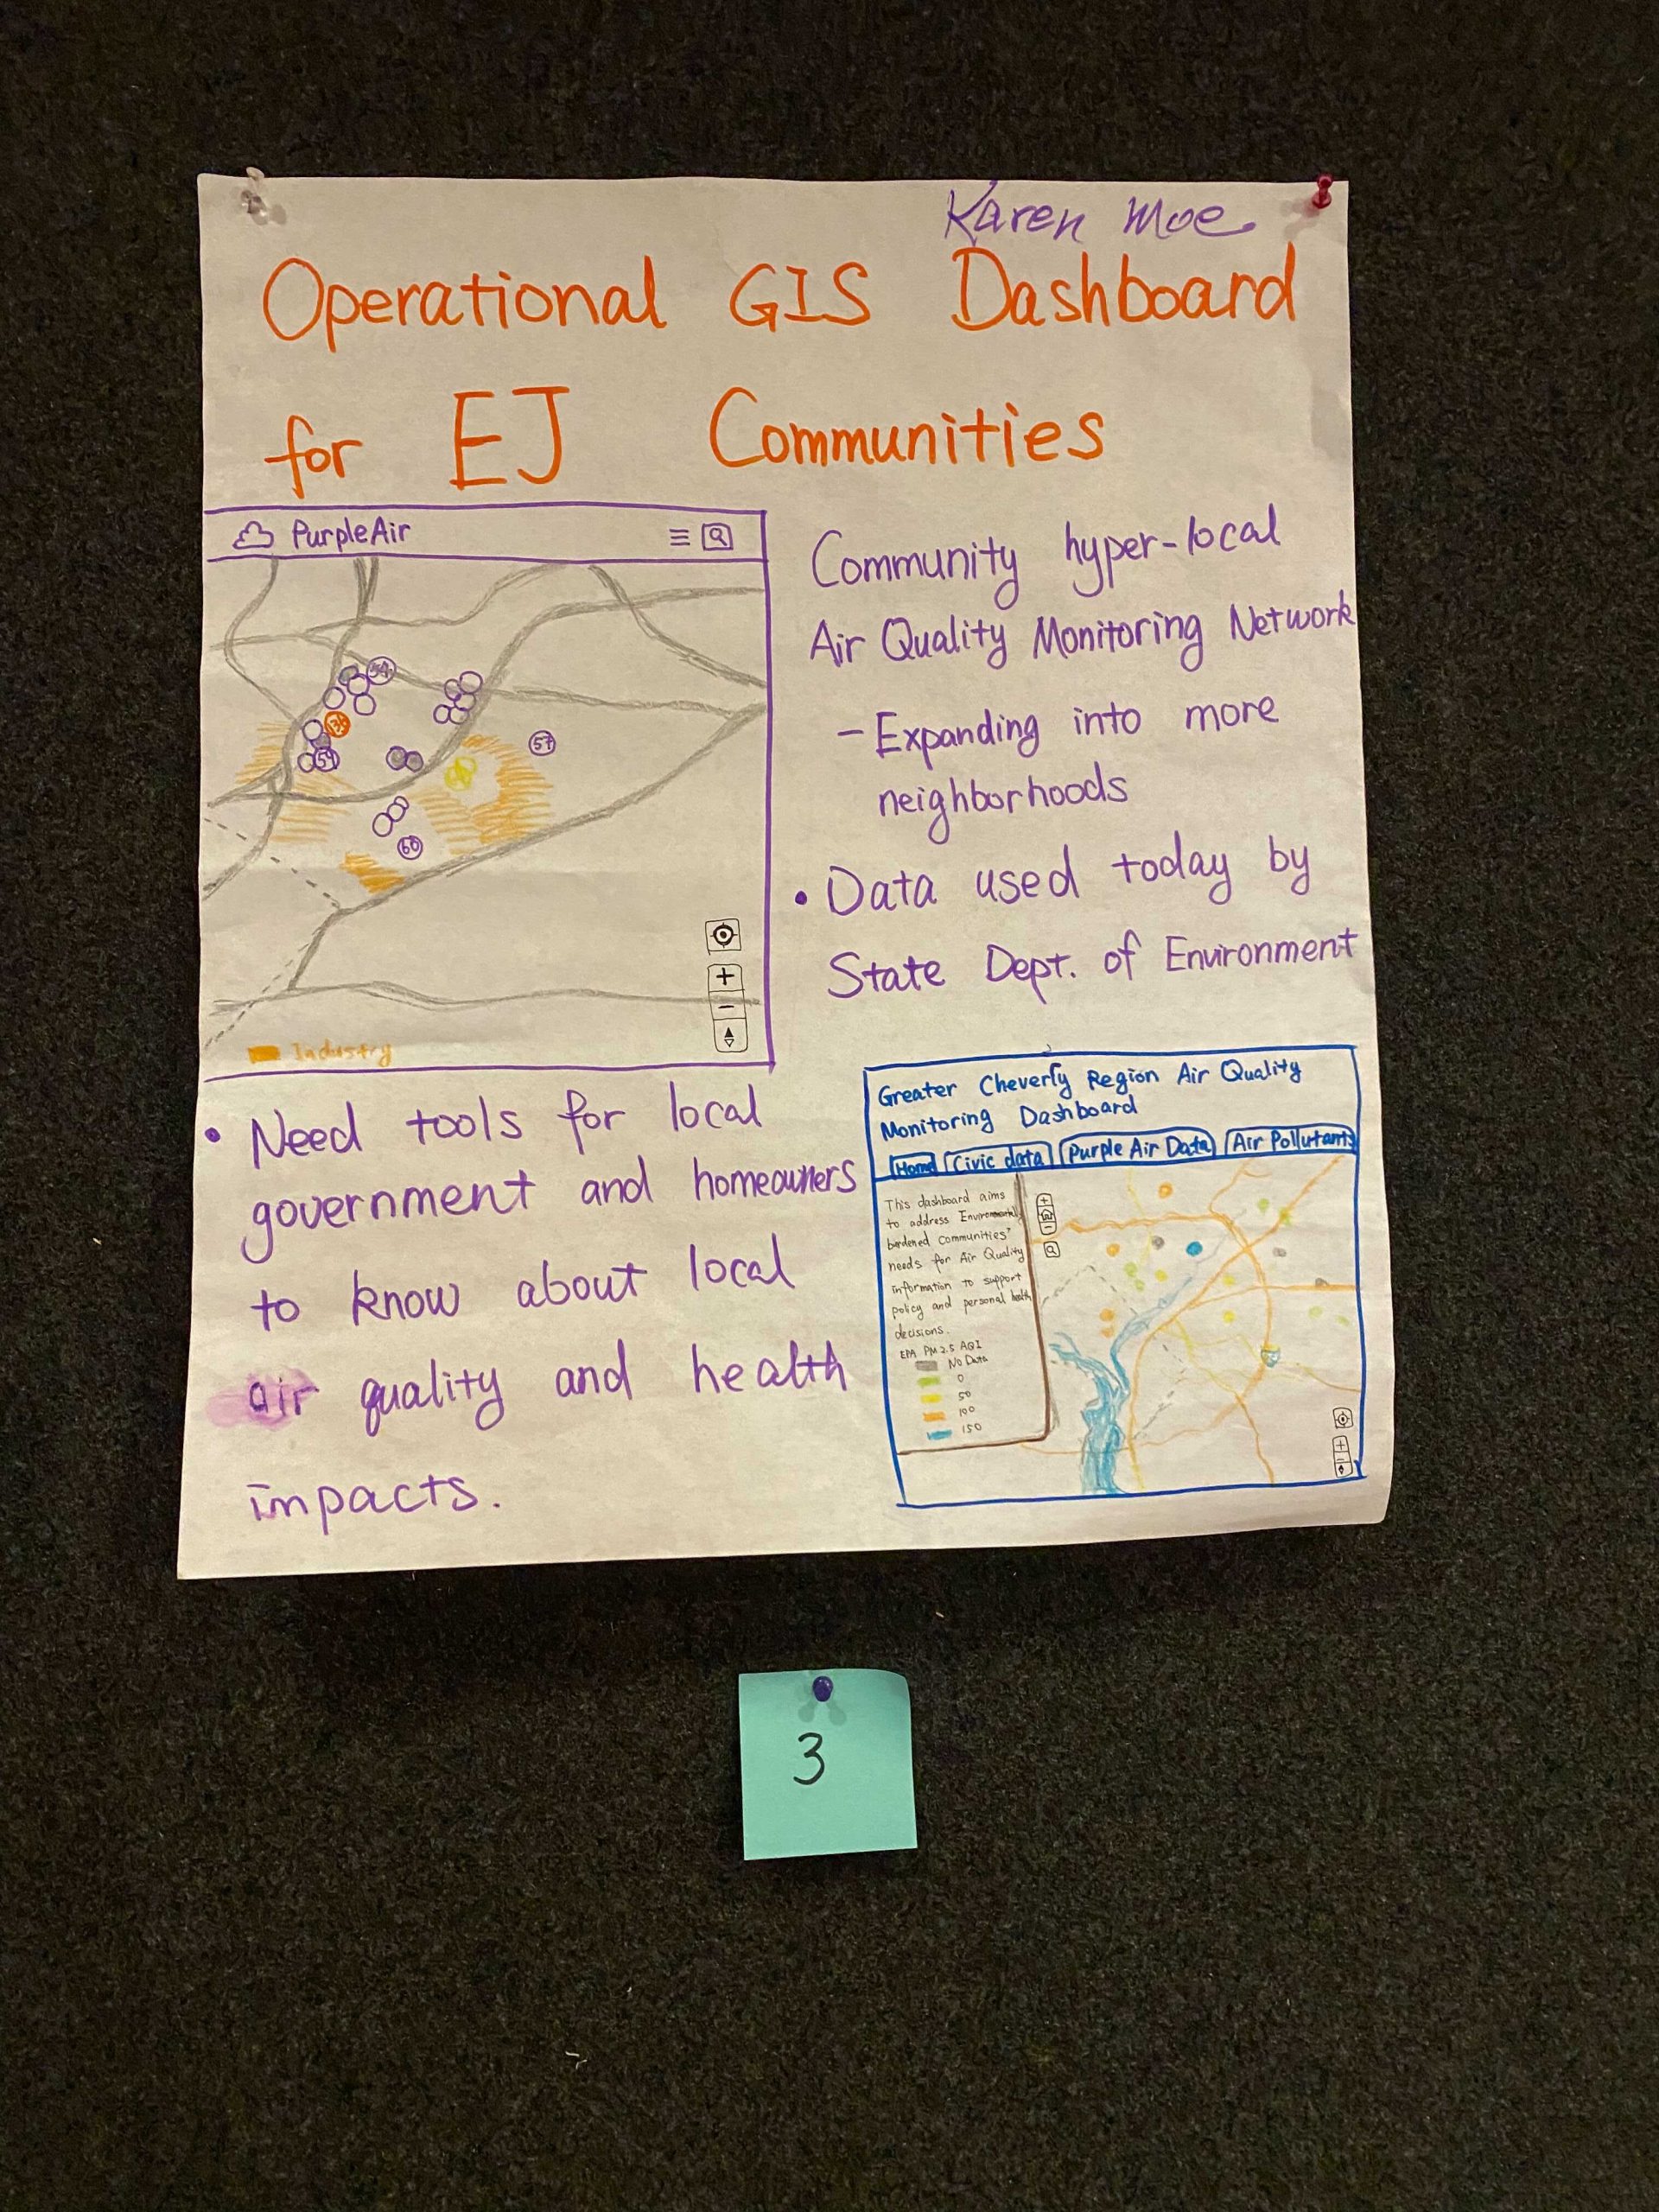 Karen Moe
Operational GIS Dashboard
for EJ Communities
PurpleAir
54
57
60
Industry
Community hyper-local
Air Quality Monitoring Network
- Expanding into more
neighborhoods
• Data used today by
State Dept. of Environment
• Need tools for local
government and homeowners
to know about local
air quality and health
impacts.
Greater Cheverly Region Air Quality
Monitoring Dashboard
Home Civic data Purple Air Data Air Pollutants
This dashboard aims
to address Environmental
burdened communities'
needs for Air Quality
information to support
policy and personal health
decisions.
EPA PM 2.5 AQI
No Data
0
50
100
150
3